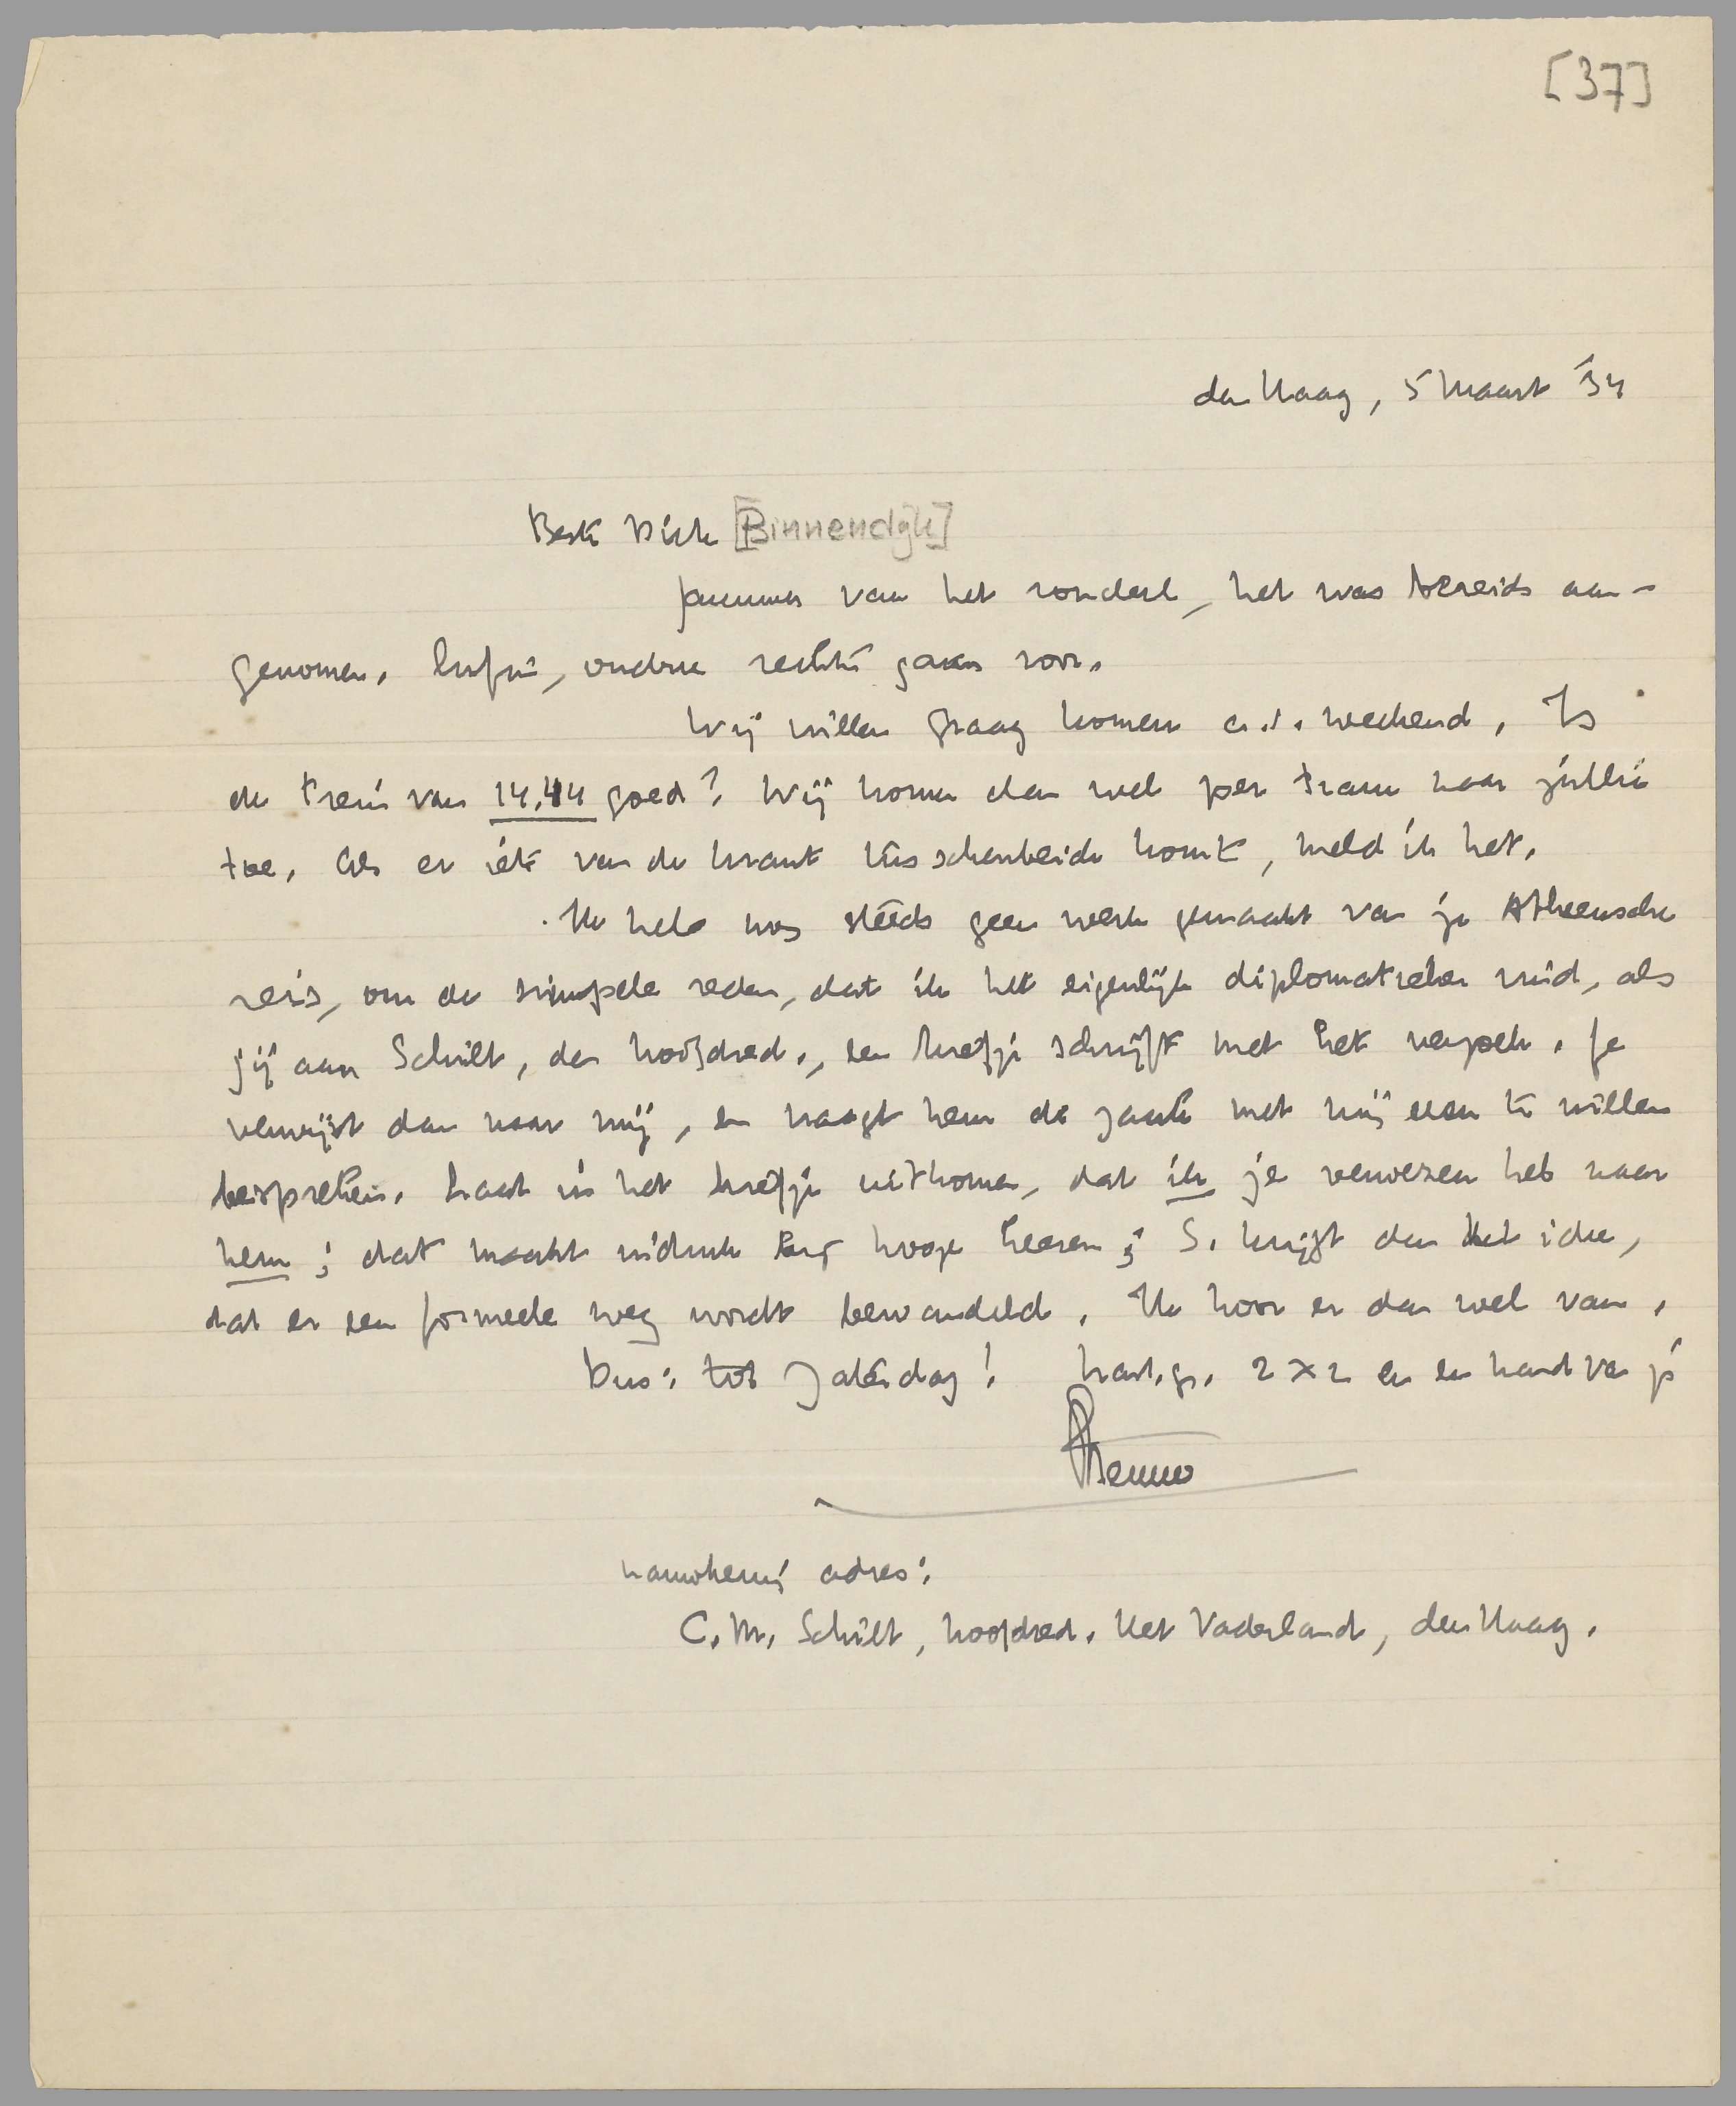 [37]
den Haag, 5 Maart '34
Beste Dick [Binnendijk]
Jammer van het rondeel, het was bereids aan-
genomen. Enfin, oudere rechten gaan voor.
Wij willen graag komen a.s. weekend. Is
de trein van 14.44 goed? Wij komen dan wel per tram naar jullie
toe. Als er iets van de krant tusschenbeide komt, meld ik het.
Ik heb nog steeds geen werk gemaakt van je Atheensche
reis, om de simpele reden, dat ik het eigenlijk diplomatieker vind, als
jij aan Schilt, den hoofdred., een briefje schrijft met het verzoek. Je
verwijst dan naar mij, en vraagt hem de zaak met mij even te willen
bespreken. Laat in het briefje uitkomen, dat ik je verwezen heb naar
hem; dat maakt indruk bij hooge heeren; S. krijgt dan het idee,
dat er een formeele weg wordt bewandeld. Ik hoor er dan wel van.
Dus: tot Zaterdag! hart. gr. 2 x 2 en een hand van je
Menno
Nauwkeurig adres:
C.M. Schilt, hoofdred. Het Vaderland, den Haag.